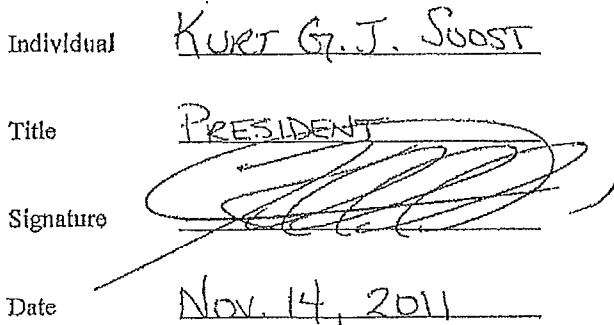 Individual KURT G. J. SUOST
Title PRESIDENT
Signature
Date Nov. 14, 2011